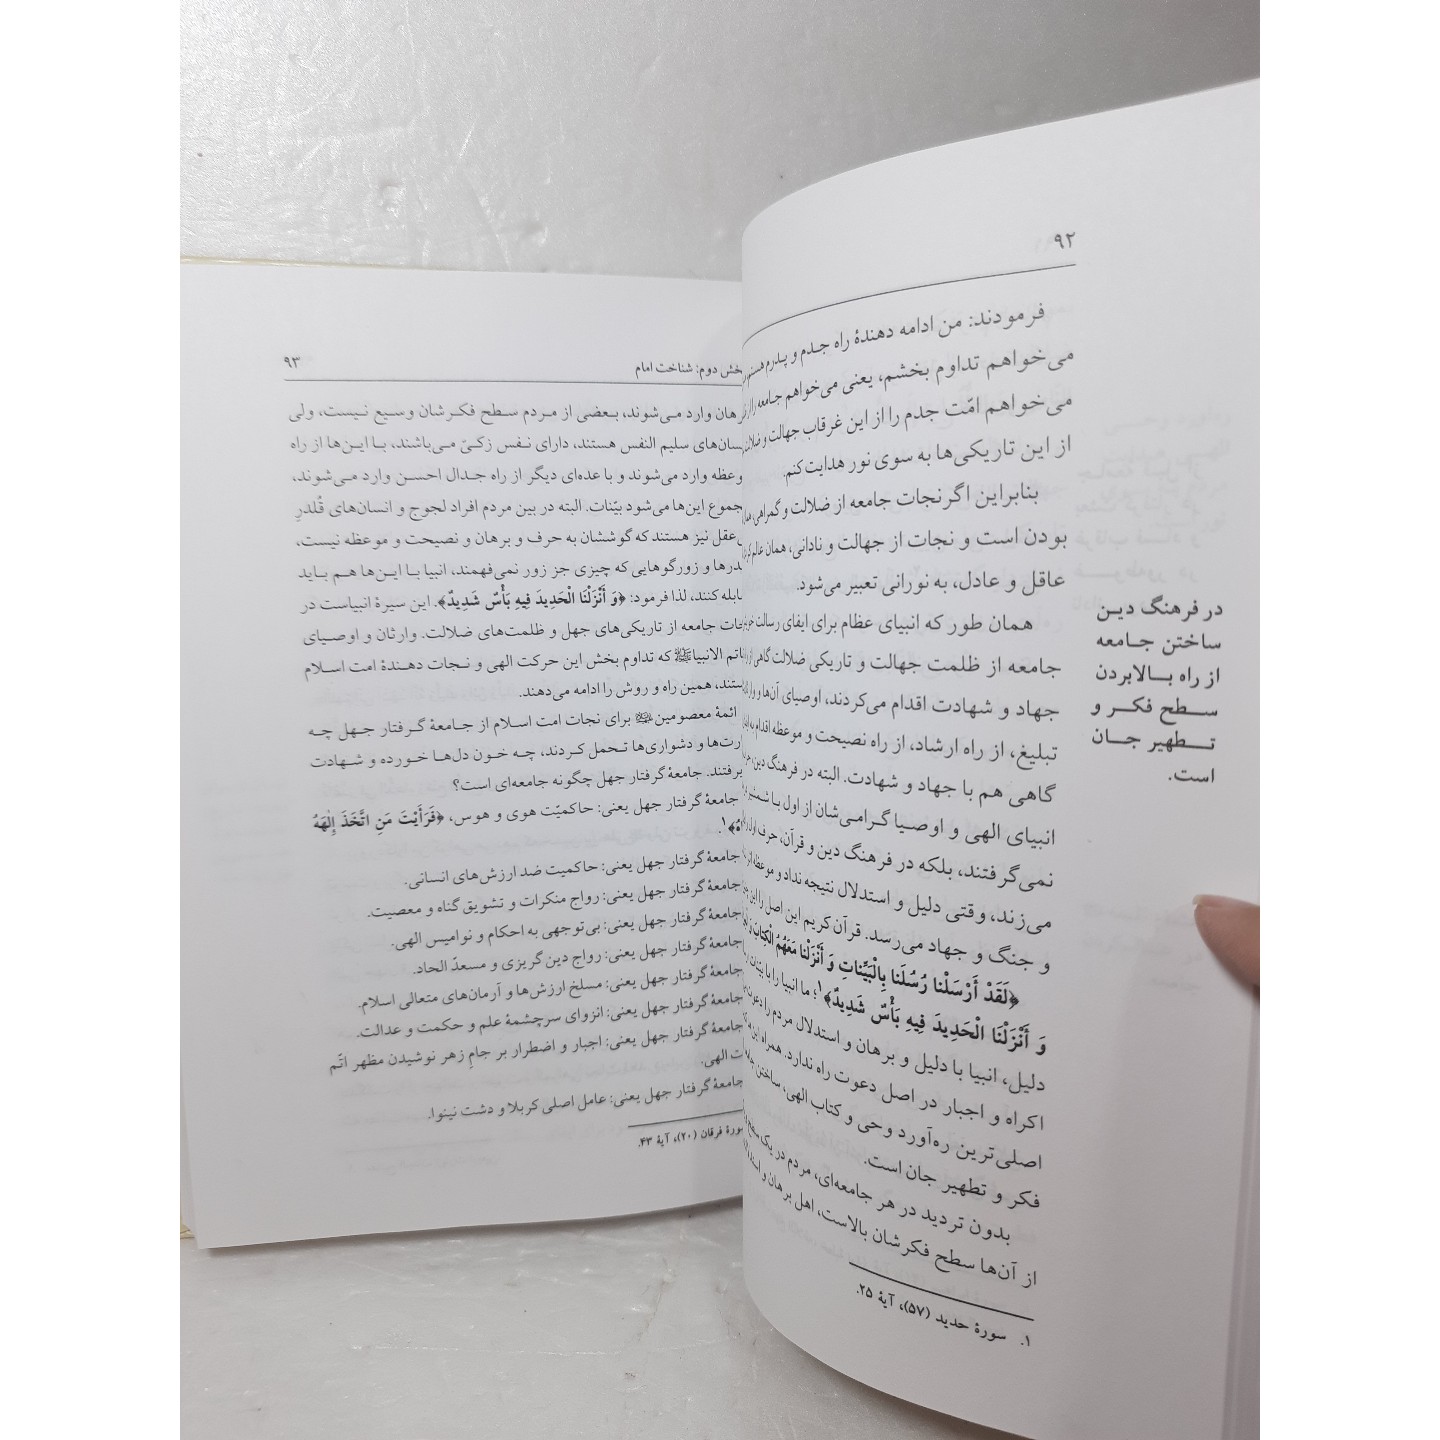 ۹۲
فرمودند: من ادامه دهندهٔ راه جدم و پدرم هستم
می‌خواهم تداوم بخشم، یعنی می‌خواهم جامعه را از
می‌خواهم امّت جدم را از این غرقاب جهالت و ضلالت
از این تاریکی‌ها به سوی نور هدایت کنم.
بنابراین اگر نجات جامعه از ضلالت و گمراهی، همان
بودن است و نجات از جهالت و نادانی، همان عالم
عاقل و عادل، به نورانی تعبیر می‌شود.
همان طور که انبیای عظام برای ایفای رسالت
جامعه از ظلمت جهالت و تاریکی ضلالت گاهی از
جهاد و شهادت اقدام می‌کردند، اوصیای آن‌ها و
تبلیغ، از راه ارشاد، از راه نصیحت و موعظه اقدام
گاهی هم با جهاد و شهادت. البته در فرهنگ دین،
انبیای الهی و اوصیا گرامی‌شان از اول با شمشیر
نمی‌گرفتند، بلکه در فرهنگ دین و قرآن، حرف اول
می‌زند، وقتی دلیل و استدلال نتیجه نداد و موعظه
و جنگ و جهاد می‌رسد. قرآن کریم این اصل را این
﴿لَقَدْ أَرْسَلْنا رُسُلَنا بِالْبَیِّناتِ وَ أَنْزَلْنا مَعَهُمُ الْکِتابَ
وَ أَنْزَلْنَا الْحَدِیدَ فِیهِ بَأْسٌ شَدِیدٌ﴾۱؛ ما انبیا را با بیّنات
دلیل، انبیا با دلیل و برهان و استدلال مردم را دعوت
اکراه و اجبار در اصل دعوت راه ندارد. همراه این
اصلی‌ترین ره‌آورد وحی و کتاب الهی، ساختن
فکر و تطهیر جان است.
بدون تردید در هر جامعه‌ای، مردم در یک سطح
از آن‌ها سطح فکرشان بالاست، اهل برهان و
۱. سورهٔ حدید (۵۷)، آیهٔ ۲۵.
در فرهنگ دین
ساختن جامعه
از راه بالا بردن
سطح فکر و
تطهیر جان
است.
بخش دوم: شناخت امام ۹۳
وارد می‌شوند، بعضی از مردم سطح فکرشان وسیع نیست، ولی
سلیم النفس هستند، دارای نفس زکیّ می‌باشند، با این‌ها از راه
وارد می‌شوند و با عده‌ای دیگر از راه جدال احسن وارد می‌شوند،
این‌ها می‌شود بیّنات. البته در بین مردم افراد لجوج و انسان‌های قُلدرِ
عقل نیز هستند که گوششان به حرف و برهان و نصیحت و موعظه نیست،
و زورگوهایی که چیزی جز زور نمی‌فهمند، انبیا با این‌ها هم باید
کنند، لذا فرمود: ﴿وَ أَنْزَلْنَا الْحَدِیدَ فِیهِ بَأْسٌ شَدِیدٌ﴾. این سیرهٔ انبیاست در
جامعه از تاریکی‌های جهل و ظلمت‌های ضلالت. وارثان و اوصیای
الانبیاﷺ که تداوم بخش این حرکت الهی و نجات دهندهٔ امت اسلام
همین راه و روش را ادامه می‌دهند.
ائمهٔ معصومین برای نجات امت اسلام از جامعهٔ گرفتار جهل چه
و دشواری‌ها تحمل کردند، چه خون دل‌ها خورده و شهادت
جامعهٔ گرفتار جهل چگونه جامعه‌ای است؟
جامعهٔ گرفتار جهل یعنی: حاکمیّت هوی و هوس، ﴿فَرَأَیْتَ مَنِ اتَّخَذَ إِلٰهَهُ
﴾۱.
جامعهٔ گرفتار جهل یعنی: حاکمیت ضد ارزش‌های انسانی.
جامعهٔ گرفتار جهل یعنی: رواج منکرات و تشویق گناه و معصیت.
جامعهٔ گرفتار جهل یعنی: بی‌توجهی به احکام و نوامیس الهی.
جامعهٔ گرفتار جهل یعنی: رواج دین گریزی و مسعدّ الحاد.
جامعهٔ گرفتار جهل یعنی: مسلخ ارزش‌ها و آرمان‌های متعالی اسلام.
جامعهٔ گرفتار جهل یعنی: انزوای سرچشمهٔ علم و حکمت و عدالت.
جامعهٔ گرفتار جهل یعنی: اجبار و اضطرار بر جامِ زهر نوشیدن مظهر اتّم
الهی.
جامعهٔ گرفتار جهل یعنی: عامل اصلی کربلا و دشت نینوا.
سورهٔ فرقان (۲۰)، آیهٔ ۴۳.